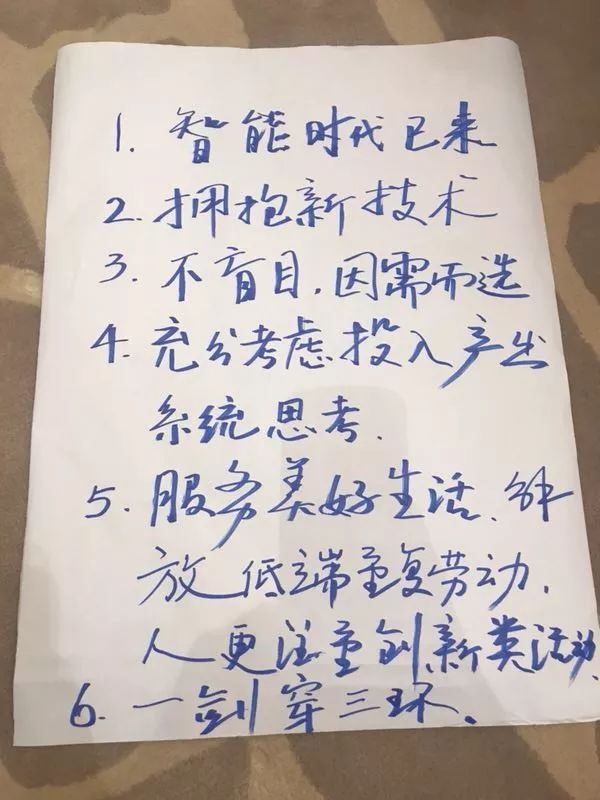 1. 智能时代已来
2. 拥抱新技术
3. 不盲目,因需而选
4. 充分考虑投入产出
系统思考.
5. 服务美好生活、解
放低端重复劳动,
人更注重创新类活动、
6. 一剑穿三环。